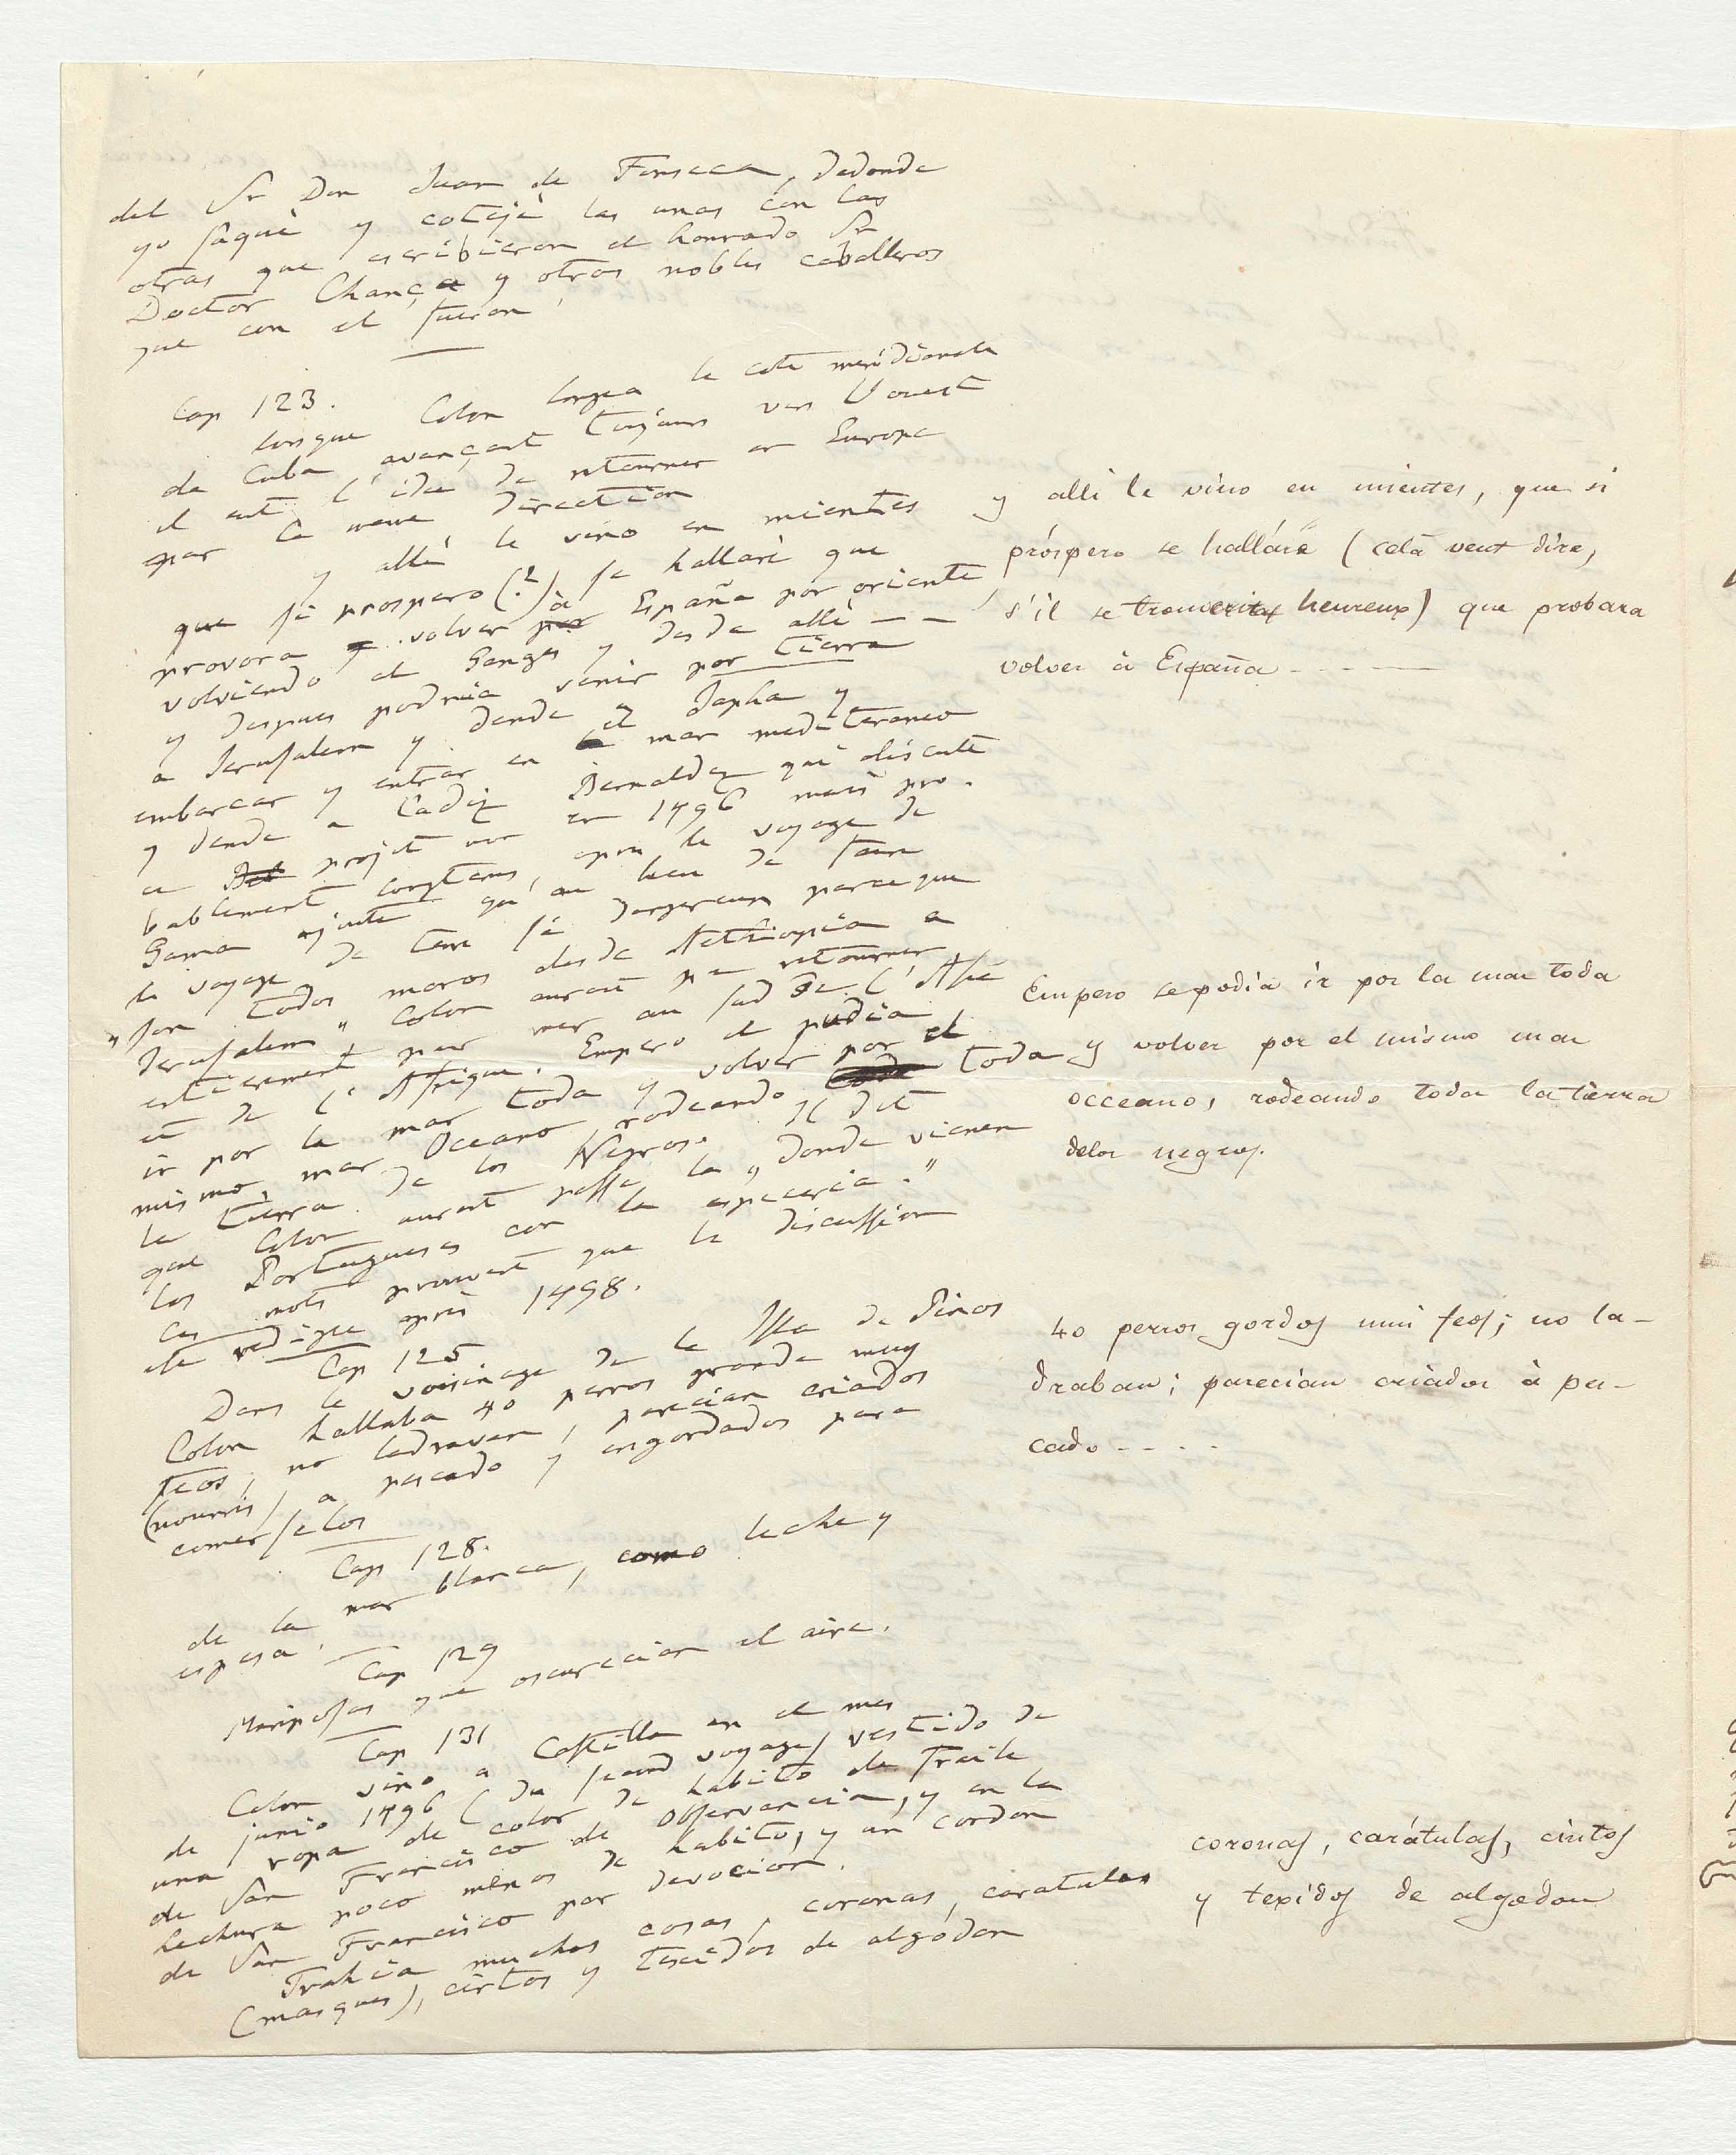 del Sr Don Juan de Fonseca, dedonde
yo saquè y cotejè las unas con las
otras que escribieron el honrado Sr
Doctor Chança y otros nobles caballeros
que con el fueron
Cap 123.
lorsque Colon longea la cote meridionale
de Cuba avançant toujours vers l'ouest
il eut l'idee de retourner en Europe
par la meme direction
y allì le vino en mientes
que si prospero (?) se hallarè que
provora volver à España por oriente
volviendo el Ganges y desde allì — —
y despues podria venir por tierra
a Jerusalem y dende a Japha y
embarcar y entrar en el mar mediteraneo
y dende a Cadiz Bernaldez qui discute
ce projet non en 1496 mais pro-
bablement longtems apres le voyage de
Gama ajoute qu'au lieu de faire
le voyage de terre si dangereux parceque
"son todos moros desde Aethiopia a
Jerusalem" Colon aurait pu retourner
entierement par mer au sud de l'Asie
et de l'Afrique. Empero el pudia
ir por la mar toda y volver por el
mismo mar Oceano, rodeando toda
la tierra de los Negros. Il dit
que Colon aurait passè la „donde vienen
los Portugueses con la especeria."
Ces mots prouvent que la discussion
ete redigee après 1498.
Cap 125
Dans le voisinage de la Isla de Pinos
Colon hallaba 40 perros grande muy
feos, no ladravan, parecian criados
(nourris) a pescado y engordados para
comerselos
Cap 128.
de la mar blanca, como leche y
espesa.
Cap 129
Mariposas que oscurecian el aire.
Cap 131
Colon vino a Castilla en el mes
de junio 1496 (du second voyage) vestido de
una ropa de color de habito de fraile
de San Francisco de Observancia, y en la
hechura poco menos de habito, y un cordon
de San Francisco por devocion.
Trahia muchas cosas, coronas, caratulas
(masques), cintos y tescidos de algodon
y alli le vino en mientes, que si
próspero se hallára (celà veut dire,
s'il se trouverait heureux) que probara
volver à España - - - -
Empero se podia ir por la mar toda
y volver por el mismo mar
occeano, rodeando toda la tierra
delos negros.
40 perros gordos mui feos; no la-
draban; parecian criados à pes-
cado - - - -
coronas, carátulas, cintos
y texidos de algodon